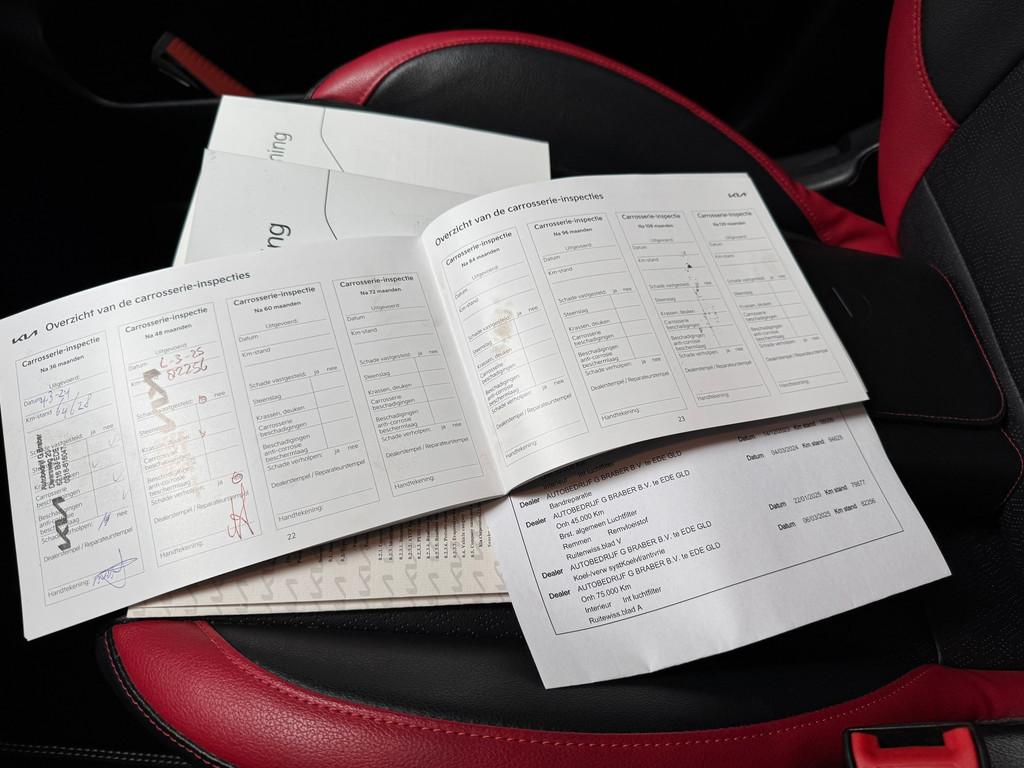 ning
ng
KIA Overzicht van de carrosserie-inspecties
Carrosserie-inspectie
Na 36 maanden
Uitgevoerd:
Datum
Km-stand 64628
nee
Carrosserie
Beschadigingen
anti-corrosie
beschermlaag
Schade verholpen: ja nee
Dealerstempel / Reparateurstempel
Handtekening:
Autobedrijf G Braber
KIA
Carrosserie-inspectie
Na 48 maanden
Uitgevoerd:
Datum 6-3-25
82256
Schade vastgesteld: ja nee
Steenslag
Krassen, deuken
Carrosserie
beschadigingen
Beschadigingen
anti-corrosie
beschermlaag
Schade verholpen: ja nee
Dealerstempel / Reparateurstempel
Handtekening:
Carrosserie-inspectie
Na 60 maanden
Uitgevoerd:
Datum
Km-stand
Schade vastgesteld: ja nee
Steenslag
Krassen, deuken
Carrosserie
beschadigingen
Beschadigingen
anti-corrosie
beschermlaag
Schade verholpen: ja nee
Dealerstempel / Reparateurstempel
Handtekening:
Carrosserie-inspectie
Na 72 maanden
Uitgevoerd:
Datum
Km-stand
Schade vastgesteld: ja nee
Steenslag
Krassen, deuken
Carrosserie
beschadigingen
Beschadigingen
anti-corrosie
beschermlaag
Schade verholpen: ja nee
Dealerstempel / Reparateurstempel
Handtekening:
22
Overzicht van de carrosserie-inspecties KIA
Carrosserie-inspectie
Na 84 maanden
Uitgevoerd:
Datum
Km-stand
Schade vastgesteld: ja nee
Steenslag
Krassen, deuken
Carrosserie
beschadigingen
Beschadigingen
anti-corrosie
beschermlaag
Schade verholpen: ja nee
Dealerstempel / Reparateurstempel
Handtekening:
Carrosserie-inspectie
Na 96 maanden
Uitgevoerd:
Datum
Km-stand
Schade vastgesteld: ja nee
Steenslag
Krassen, deuken
Carrosserie
beschadigingen
Beschadigingen
anti-corrosie
beschermlaag
Schade verholpen: ja nee
Dealerstempel / Reparateurstempel
Handtekening:
Carrosserie-inspectie
Na 108 maanden
Uitgevoerd:
Datum
Km-stand
Schade vastgesteld: ja nee
Steenslag
Krassen, deuken
Carrosserie
beschadigingen
Beschadigingen
anti-corrosie
beschermlaag
Schade verholpen: ja nee
Dealerstempel / Reparateurstempel
Handtekening:
Carrosserie-inspectie
Na 120 maanden
Uitgevoerd:
Datum
Km-stand
Schade vastgesteld: ja nee
Steenslag
Krassen, deuken
Carrosserie
beschadigingen
Beschadigingen
anti-corrosie
beschermlaag
Schade verholpen: ja nee
Dealerstempel / Reparateurstempel
Handtekening:
23
Interieur Int luchtfilter
Dealer AUTOBEDRIJF G BRABER B.V. te EDE GLD Datum Km stand
Bandreparatie
Dealer AUTOBEDRIJF G BRABER B.V. te EDE GLD Datum 04/03/2024 Km stand 64628
Onh 45.000 Km
Brst. algemeen Luchtfilter
Remmen Remvloeistof
Ruitenwiss.blad V
Dealer AUTOBEDRIJF G BRABER B.V. te EDE GLD Datum 22/01/2025 Km stand 79877
Koel-/verw systKoelvl/antivrie
Dealer AUTOBEDRIJF G BRABER B.V. te EDE GLD Datum 06/03/2025 Km stand 82256
Onh 75.000 Km
Interieur Int luchtfilter
Ruitewiss.blad A